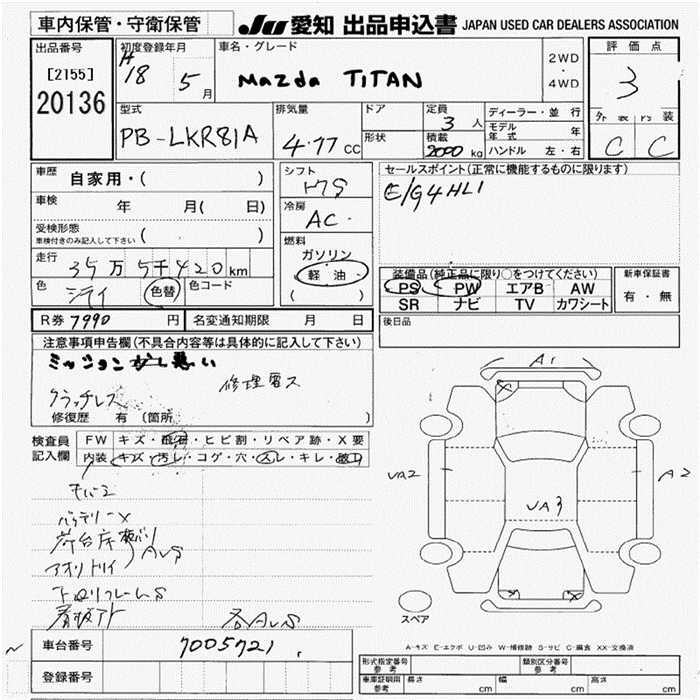 車内保管・守衛保管
JU 愛知 出品申込書 JAPAN USED CAR DEALERS ASSOCIATION
出品番号
[2155]
20136
初度登録年月
H
18 5 月
車名・グレード
Mazda TITAN
2WD
・
4WD
評価点
3
外 装 内 装
C C
型式
PB-LKR81A
排気量
4.77 CC
ドア
形状
定員
3 人
積載
2000 kg
ディーラー・並 行
モデル年式 年
ハンドル 左・右
車歴
自家用・( )
車検
年 月( 日)
受検形態
車検付きのみ記入して下さい ( )
走行
35万5千420km
色
シロイ
色替
色コード
シフト
F5
冷房
AC
燃料
ガソリン
軽 油
( )
セールスポイント(正常に機能するものに限ります)
E/G4HL1
装備品(純正品に限り○をつけてください)
PS PW エアB AW
SR ナビ TV カワシート
新車保証書
有・無
R券 7990 円
名変通知期限 月 日
後日品
注意事項申告欄(不具合内容等は具体的に記入して下さい)
ミッション 悪い
クラッチレス
修復歴 有 (箇所 )
検査員
記入欄
FW キズ・飛石・ヒビ割・リペア跡・X要
内装 キズ・汚レ・コゲ・穴・スレ・キレ・欠品
バッテリーX
荷台床
アオリトリイ
下回リフレームS
各AUS
A1
UA2
UA3
A2
スペア
A-キズ E-エクボ U-凹み W-補修跡 S-サビ C-腐食 XX-交換済
車台番号
7005721
登録番号
形式指定番号
参考
類別区分番号
参考
自動車証明用
参考
長さ cm
幅 cm
高さ cm